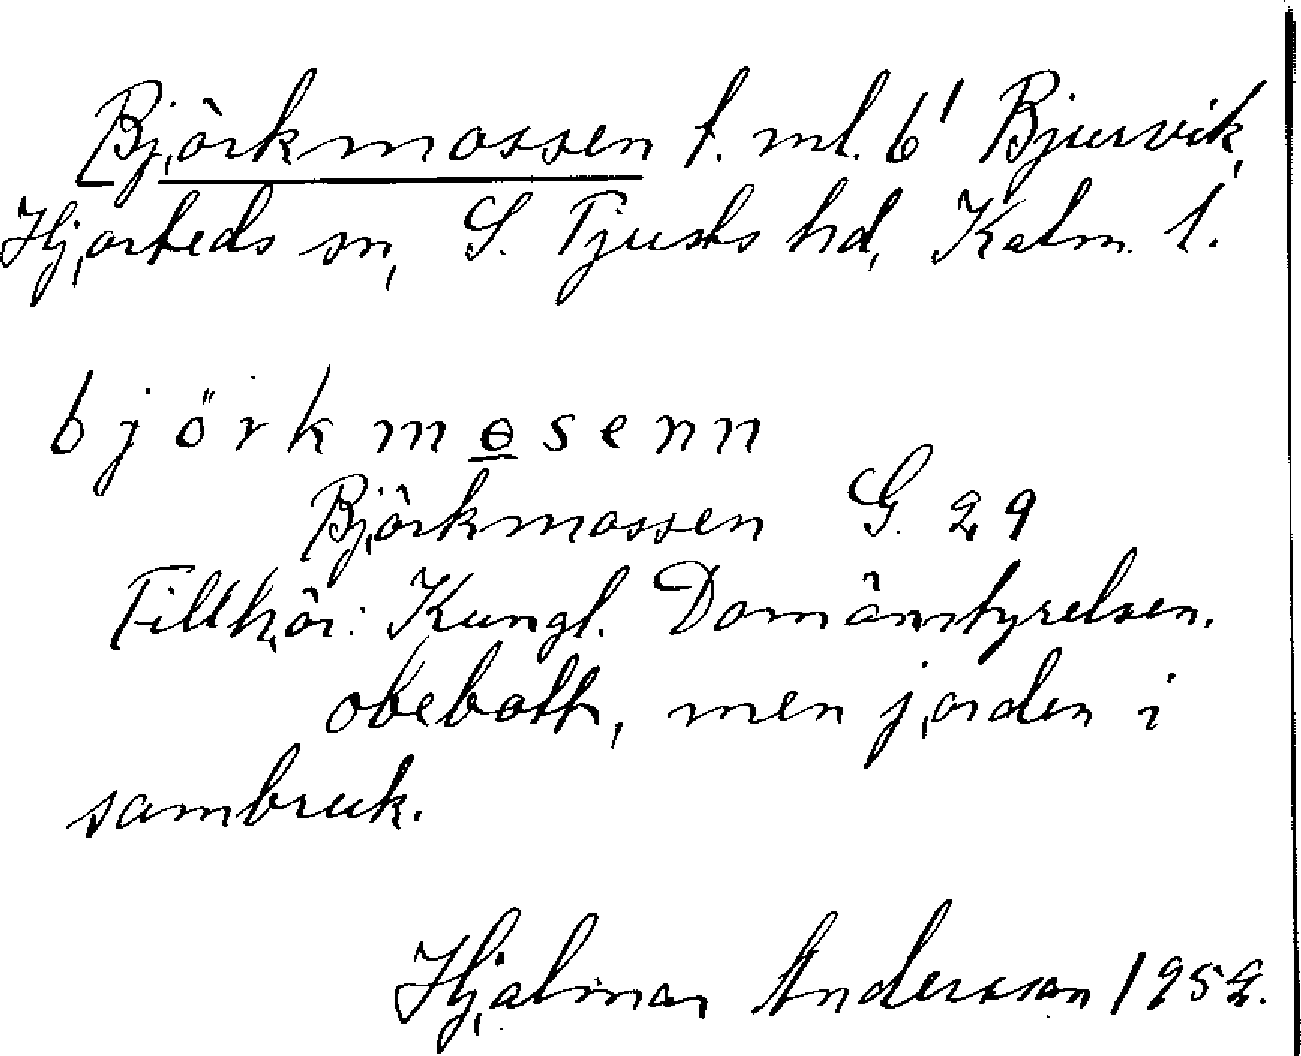 Björkmossen t. ml. 6' Bjurvik,
Hjorteds sn, S. Tjusts hd, Kalm. l.
björkmɵsenn
Björkmossen G. 29
Tillhör: Kungl. Domänstyrelsen.
obebott, men jorden i
sambruk.
Hjalmar Andersson 1952.